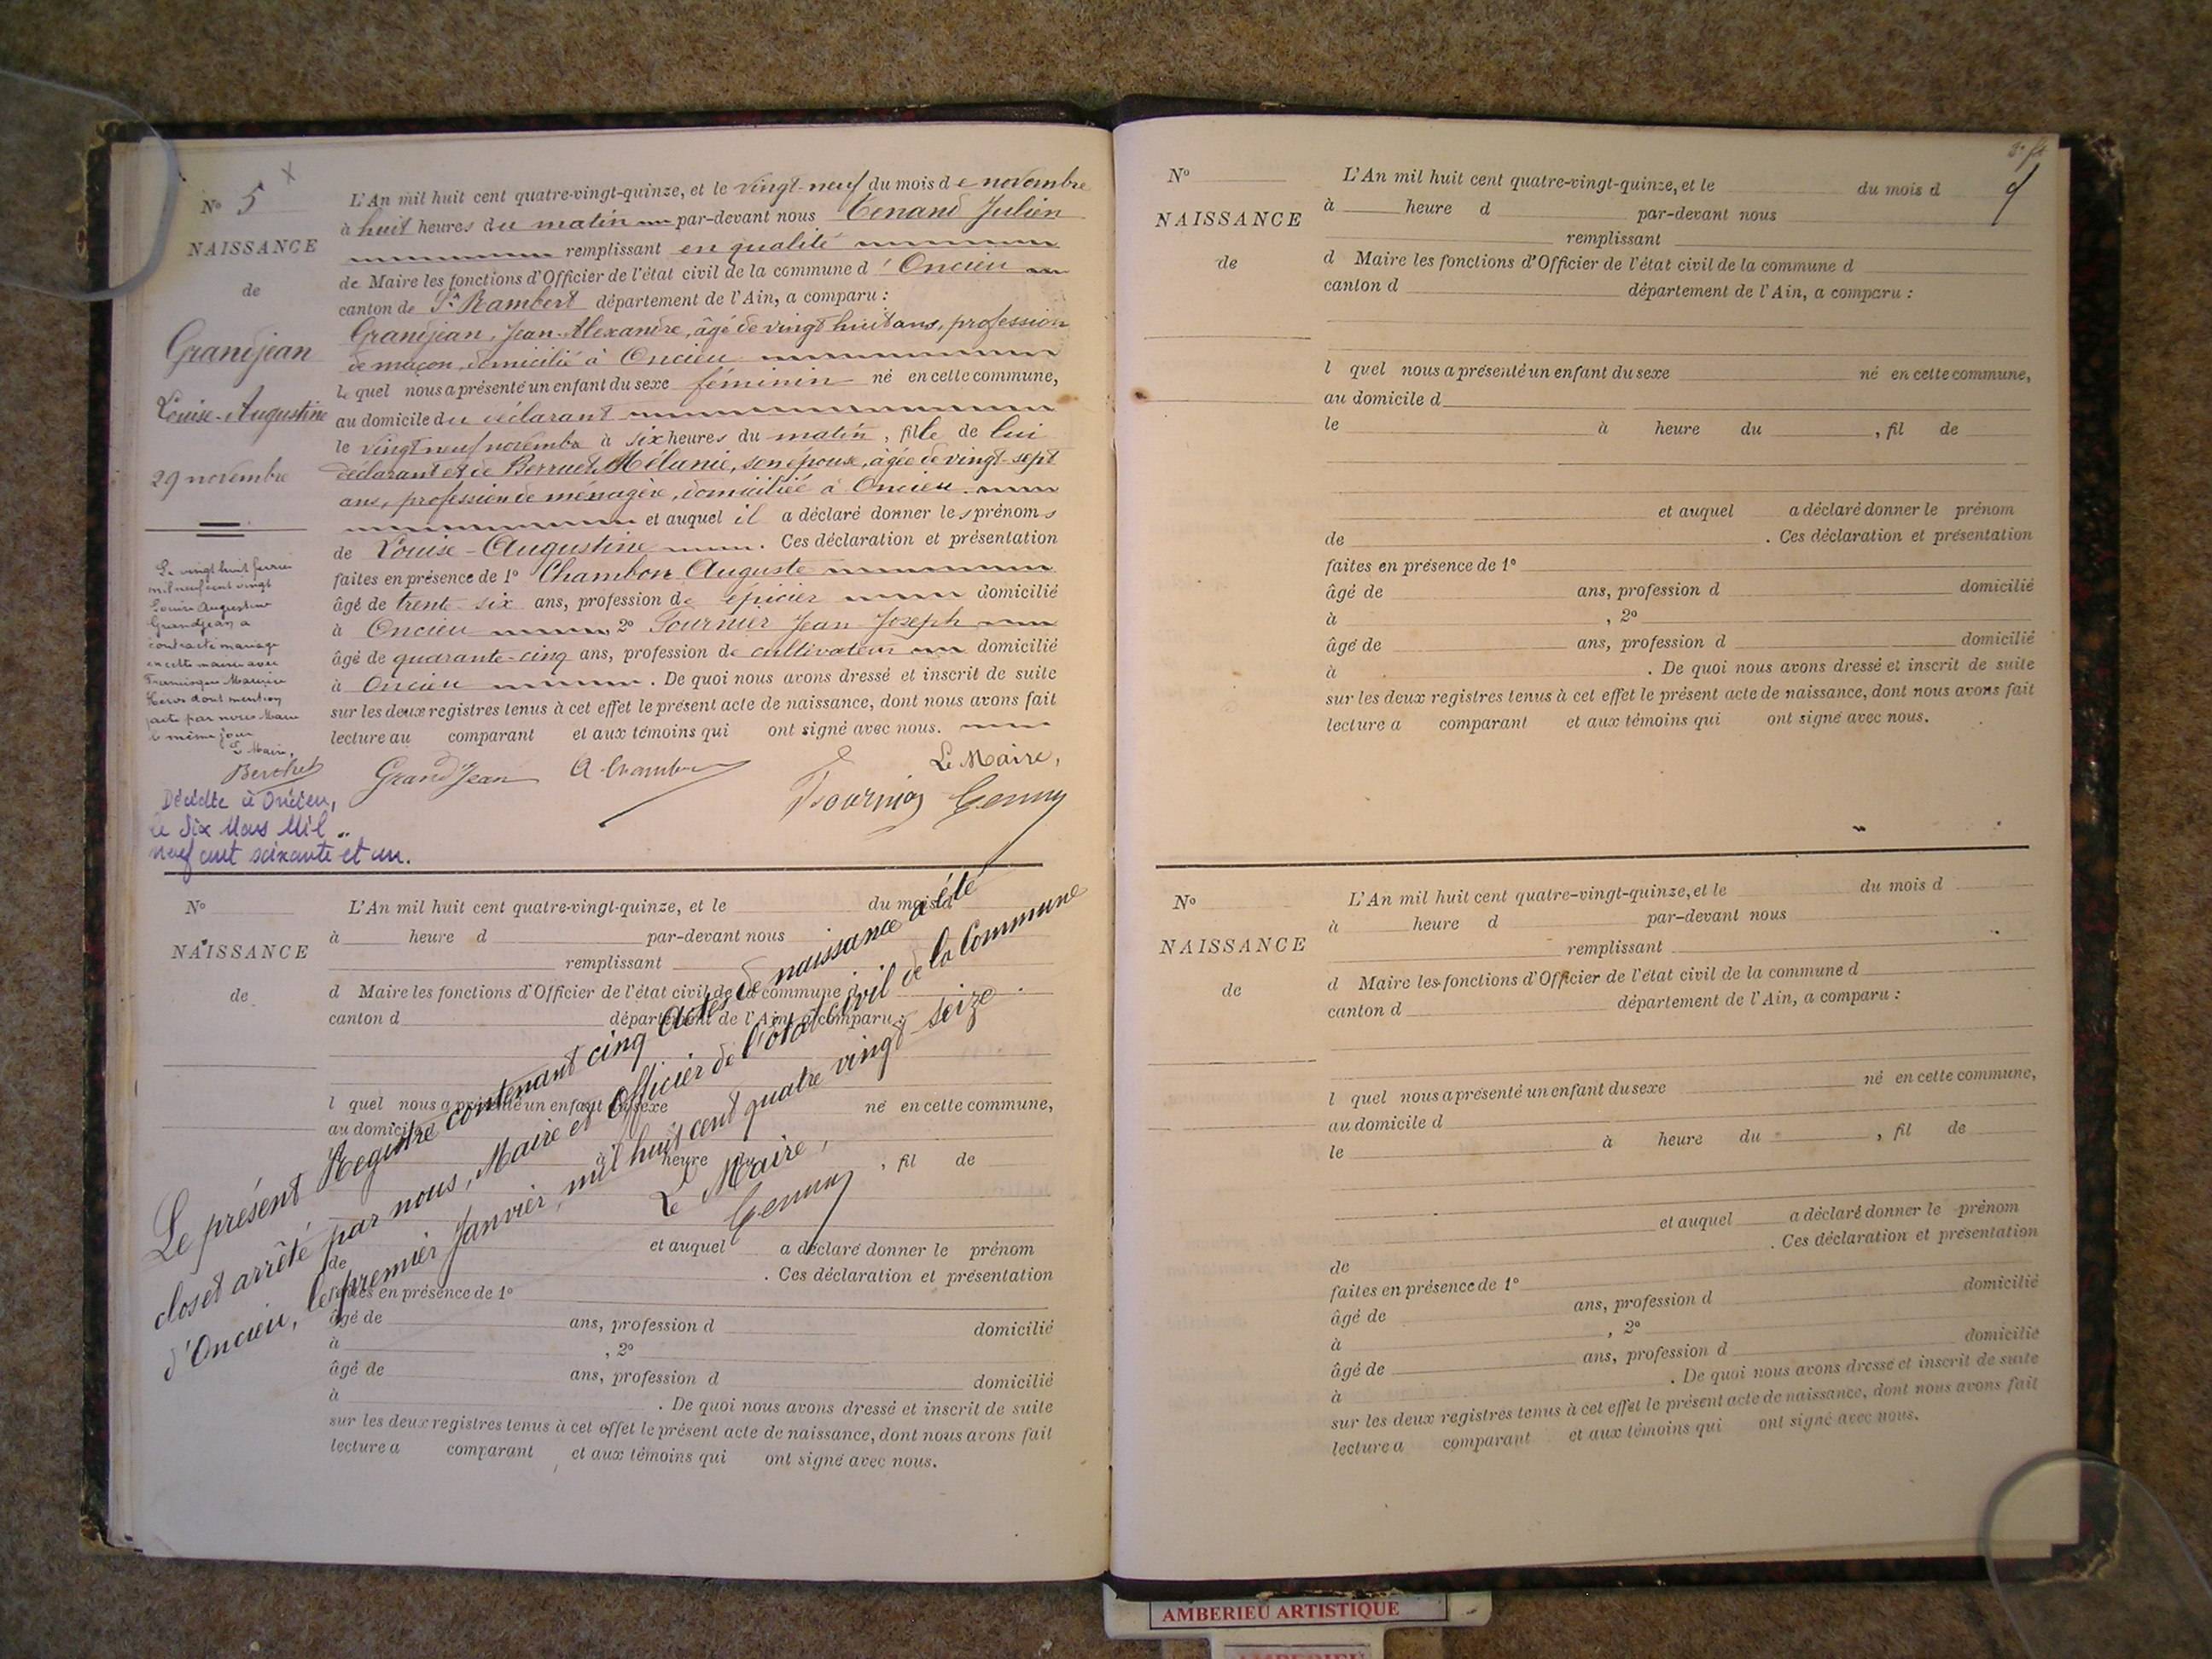 N° 5 ×
NAISSANCE
de
Grandjean
Louise-Augustine
29 novembre
L'An mil huit cent quatre-vingt-quinze, et le vingt-neuf du mois de novembre
à huit heures du matin par-devant nous Tenand Julien
remplissant en qualité
de Maire les fonctions d'Officier de l'état civil de la commune d'Oncieu
canton de St Rambert département de l'Ain, a comparu :
Grandjean, Jean-Alexandre, âgé de vingt huit ans, profession
de maçon, domicilié à Oncieu
le quel nous a présenté un enfant du sexe féminin né en cette commune,
au domicile du déclarant
le vingt neuf novembre à six heures du matin, fille de lui
déclarant et de Berruet Mélanie, son épouse, âgée de vingt-sept
ans, profession de ménagère, domiciliée à Oncieu.
et auquel il a déclaré donner les prénoms
de Louise-Augustine. Ces déclaration et présentation
faites en présence de 1° Chambon Auguste
âgé de trente-six ans, profession de épicier domicilié
à Oncieu, 2° Fournier Jean Joseph
âgé de quarante-cinq ans, profession de cultivateur domicilié
à Oncieu. De quoi nous avons dressé et inscrit de suite
sur les deux registres tenus à cet effet le présent acte de naissance, dont nous avons fait
lecture au comparant et aux témoins qui ont signé avec nous.
Le Maire,
GrandJean A. Chambon Fournier
Le vingt huit février
mil neuf cent vingt
Louise Augustine
Grandjean a
contracté mariage
en cette mairie avec
Francisque Maurice
dont mention
faite par nous Maire
le même jour
Le Maire,
Berthet
Décédée à Oncieu,
le dix Mars Mil
neuf cent soixante et un.
N°
NAISSANCE
de
L'An mil huit cent quatre-vingt-quinze, et le du mois d
à heure d par-devant nous
remplissant
d Maire les fonctions d'Officier de l'état civil de la commune d
canton d département de l'Ain, a comparu :
l quel nous a présenté un enfant du sexe né en cette commune,
au domicile d
le à heure du , fil de
et auquel a déclaré donner le prénom
de . Ces déclaration et présentation
faites en présence de 1°
âgé de ans, profession d domicilié
à , 2°
âgé de ans, profession d domicilié
à . De quoi nous avons dressé et inscrit de suite
sur les deux registres tenus à cet effet le présent acte de naissance, dont nous avons fait
lecture a comparant et aux témoins qui ont signé avec nous.
Le présent Registre contenant cinq actes de naissance a été
clos et arrêté par nous, Maire et Officier de l'état civil de la Commune
d'Oncieu, le premier Janvier, mil huit cent quatre vingt-seize.
Le Maire,
N°
NAISSANCE
de
L'An mil huit cent quatre-vingt-quinze, et le du mois d
à heure d par-devant nous
remplissant
d Maire les fonctions d'Officier de l'état civil de la commune d
canton d département de l'Ain, a comparu :
l quel nous a présenté un enfant du sexe né en cette commune,
au domicile d
le à heure du , fil de
et auquel a déclaré donner le prénom
de . Ces déclaration et présentation
faites en présence de 1°
âgé de ans, profession d domicilié
à , 2°
âgé de ans, profession d domicilié
à . De quoi nous avons dressé et inscrit de suite
sur les deux registres tenus à cet effet le présent acte de naissance, dont nous avons fait
lecture a comparant et aux témoins qui ont signé avec nous.
N°
NAISSANCE
de
L'An mil huit cent quatre-vingt-quinze, et le du mois d
à heure d par-devant nous
remplissant
d Maire les fonctions d'Officier de l'état civil de la commune d
canton d département de l'Ain, a comparu :
l quel nous a présenté un enfant du sexe né en cette commune,
au domicile d
le à heure du , fil de
et auquel a déclaré donner le prénom
de . Ces déclaration et présentation
faites en présence de 1°
âgé de ans, profession d domicilié
à , 2°
âgé de ans, profession d domicilié
à . De quoi nous avons dressé et inscrit de suite
sur les deux registres tenus à cet effet le présent acte de naissance, dont nous avons fait
lecture a comparant et aux témoins qui ont signé avec nous.
AMBERIEU ARTISTIQUE
AMBERIEU